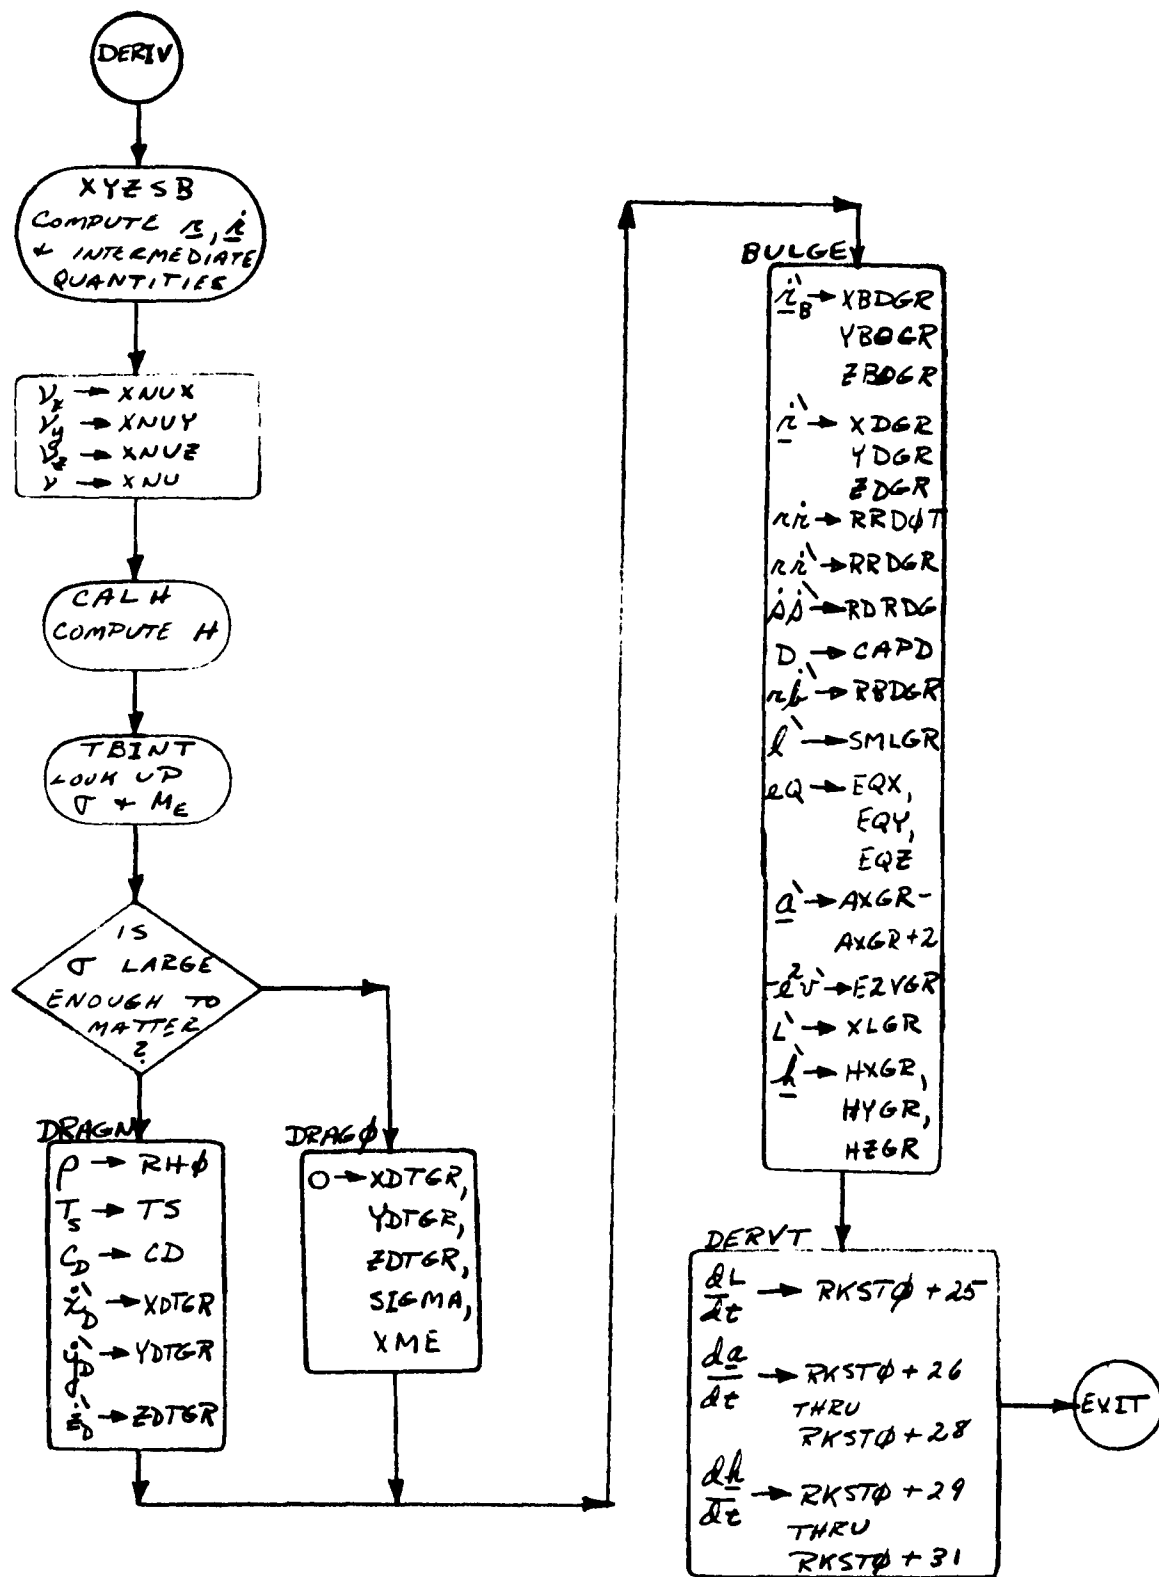 DERIV
XYZSB
COMPUTE r, ṙ
& INTERMEDIATE
QUANTITIES
ν_x → XNUX
ν_y → XNUY
ν_z → XNUZ
ν → XNU
CALH
COMPUTE H
TBINT
LOOK UP
σ & M_E
IS
σ LARGE
ENOUGH TO
MATTER
?
DRAGN
ρ → RHØ
T_S → TS
C_D → CD
ẋ`_D → XDTGR
ẏ`_D → YDTGR
ż`_D → ZDTGR
DRAGØ
O → XDTGR,
YDTGR,
ZDTGR,
SIGMA,
XME
BULGE
ṙ`_B → XBDGR
YBDGR
ZBDGR
ṙ` → XDGR
YDGR
ZDGR
rṙ → RRDØT
rṙ` → RRDGR
ṡṡ` → RDRDG
D → CAPD
rḃ` → RBDGR
l` → SMLGR
eQ → EQX,
EQY,
EQZ
a` → AXGR-
AXGR+2
e²v` → E2VGR
L` → XLGR
h` → HXGR,
HYGR,
HZGR
DERVT
dL/dt → RKSTØ + 25
da/dt → RKSTØ + 26
THRU
RKSTØ + 28
dh/dt → RKSTØ + 29
THRU
RKSTØ + 31
EXIT